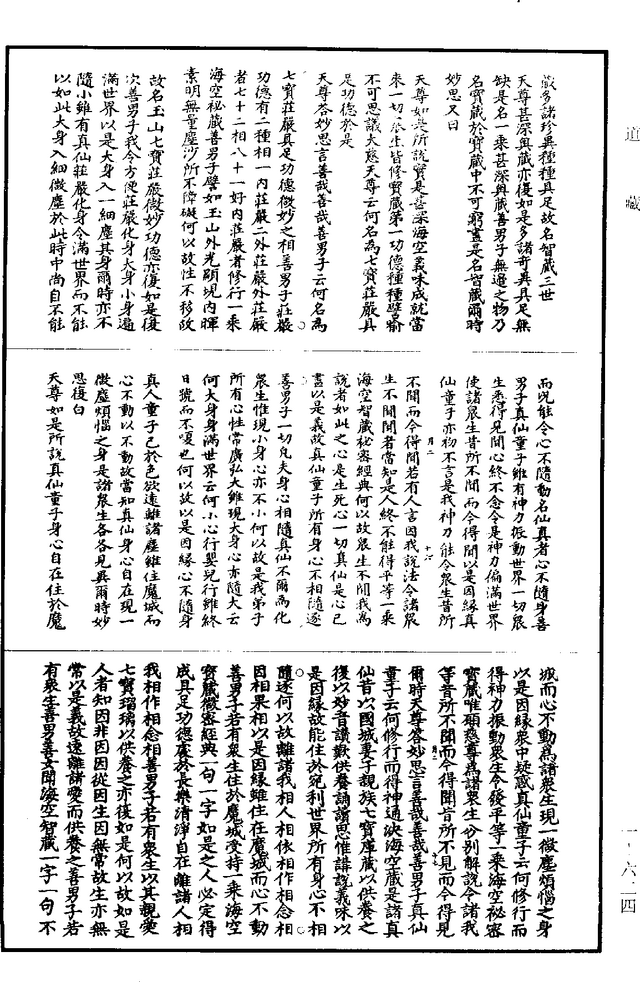 道藏
藏多諸珍異種種具足故名智藏三世
天尊甚深輿藏亦復如是多諸奇異具足無
缺是名一乘甚深輿藏善男子無邊之物乃
名寶藏於寶藏中不可窮盡是名智藏爾時
妙思又曰
天尊如是所說實是甚深海空義味成就當
來一切眾生皆修寶藏第一功德種種譬喻
不可思議大慈天尊云何名為七寶莊嚴具
足功德於是
天尊答妙思言善哉善哉善男子云何名為
七寶莊嚴具足功德微妙之相善男子莊嚴
功德有二種相一內莊嚴二外莊嚴外莊嚴
者七十二相八十一好內莊嚴者修行一乘
海空秘藏善男子譬如玉山外光顯現內暉
素明無量塵沙所不障礙何以故性不移故
故名玉山七寶莊嚴微妙功德亦復如是復
次善男子我今方便莊嚴化身大身小身遍
滿世界以是大身入一細塵其身爾時亦不
隨小雖有真仙莊嚴化身令滿世界而不能
以如此大身入細微塵於此時中尚自不能
而況能令心不隨動名仙真者心不隨身善
男子真仙童子雖有神力振動世界一切眾
生悉得見聞心終不念令是神力徧滿世界
使諸眾生昔所不聞而令得聞以是因緣真
仙童子亦初不言是我神力能令眾生昔所
不聞而令得聞若有人言因我說法令諸眾
生不聞聞者當知是人終不能得平等一乘
海空智藏秘密經典何以故眾生不聞我為
說者如此之心是生死心一切真仙是心已
盡以是義故真仙童子所有身心不相隨逐
善男子一切凡夫身心相隨真仙不爾為化
眾生惟現小身心亦不小何以故是我弟子
所有心性常廣弘大雖現大身心亦隨大云
何大身身滿世界云何小心行嬰兒行雖終
日號而不嗄也何以故以是因緣心不隨身
真人童子已於色欲遠離諸塵雖住魔城而
心不動以不動故當知真仙身心自在現一
微塵煩惱之身是諸眾生各各見異爾時妙
思復白
天尊如是所說真仙童子身心自在住於魔
城而心不動為諸眾生現一微塵煩惱之身
以是因緣眾中疑惑真仙童子云何修行而
得神力振動眾生令發平等一乘海空祕密
寶藏唯願慈尊為諸眾生分別解說令諸我
等昔所不聞而令得聞昔所不見而令得見
爾時天尊答妙思言善哉善哉善男子真仙
童子云何修行而得神通決海空藏是諸真
仙昔以國城妻子親族七寶庫藏以供養之
復以妙音讚歎供養誦讚思惟講說義味以
是因緣故能住於宛利世界所有身心不相
隨逐何以故離諸我相人相依相作相念相
因相果相以是因緣雖住在魔城而心不動
善男子若有眾生住於魔城受持一乘海空
寶藏微密經典一句一字如是之人必定得
成具足功德處於長樂清淨自在離諸人相
我相作相念相善男子若有眾生以其親愛
七寶瑠璃以供養之亦復如是何以故如是
人者知因非因因從因生因無常故生亦無
常以是義故遠離諸愛而供養之善男子若
有眾生善男善女聞海空智藏一字一句不
一-六二四